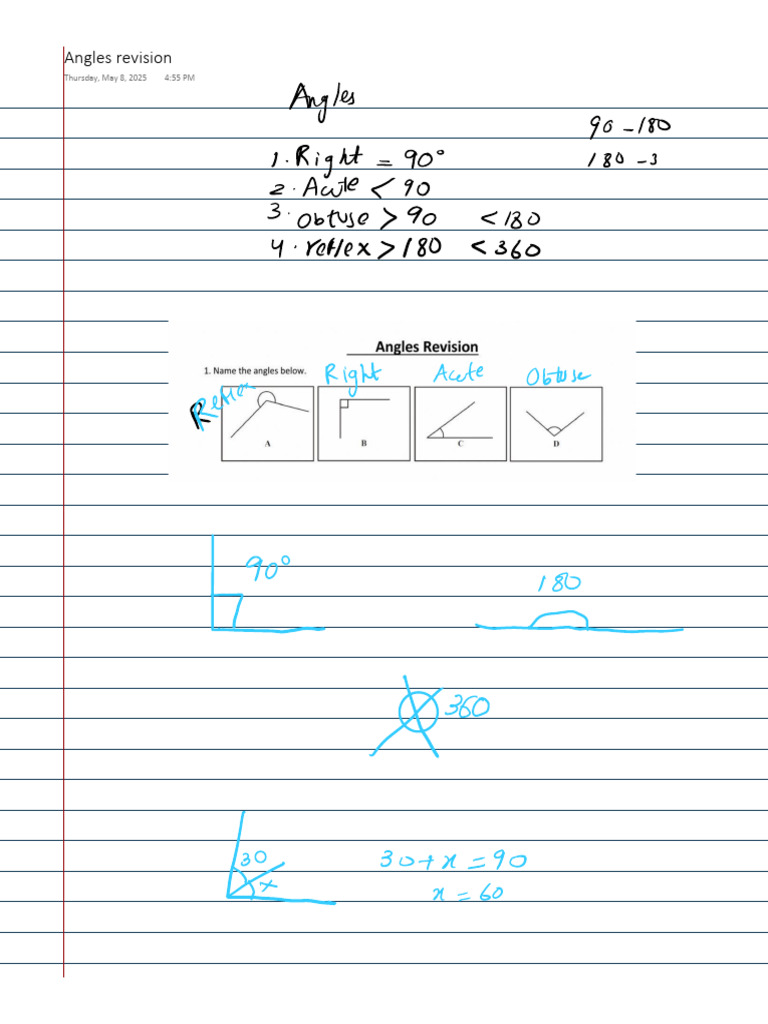 Angles revision
Thursday, May 8, 2025 4:55 PM
Angles
90 - 180
1. Right = 90°
180 - 3
2. Acute < 90
3. Obtuse > 90 < 180
4. reflex > 180 < 360
Angles Revision
1. Name the angles below.
Right Acute Obtuse
R Reflex
A B C D
90°
180
360
30
x
30 + x = 90
x = 60